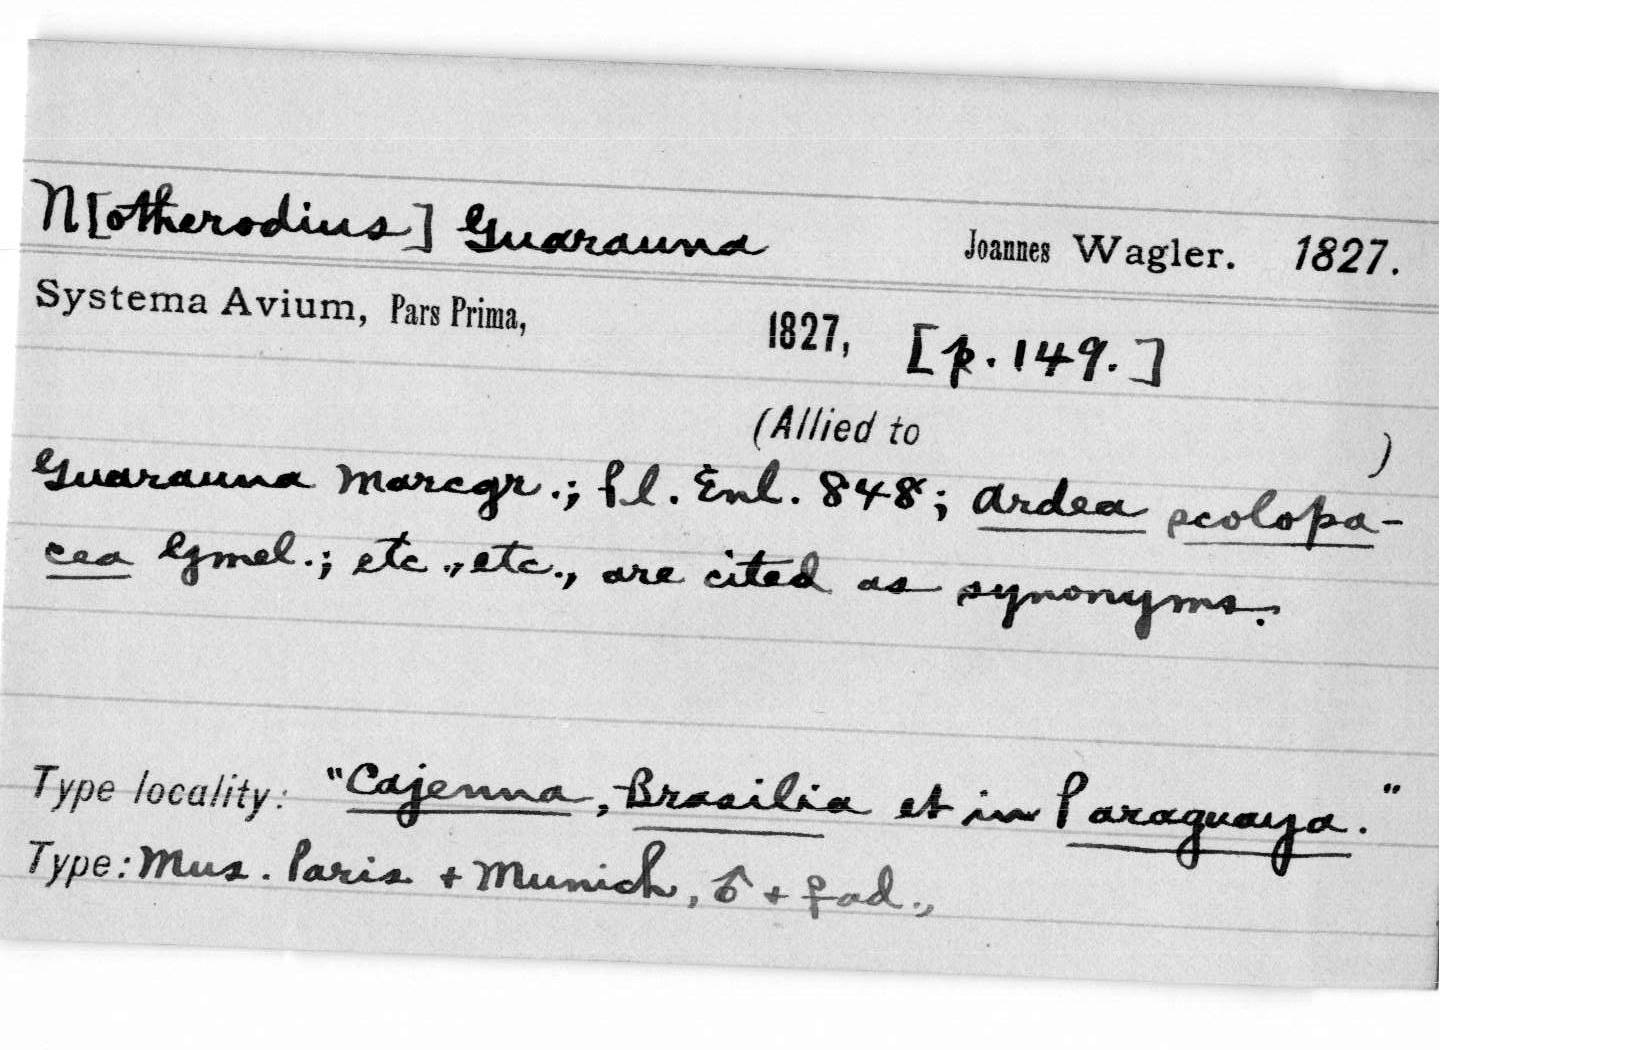 N[otherodius] Guarauna Joannes Wagler. 1827.
Systema Avium, Pars Prima, 1827, [p. 149.]
(Allied to )
Guarauna Marcgr.; Pl. Enl. 848; Ardea scolopa-
cea Gmel.; etc., etc., are cited as synonyms.
Type locality: "Cajenna, Brasilia et in Paraguaya."
Type: Mus. Paris + Munich, ♂ + ♀ ad.,